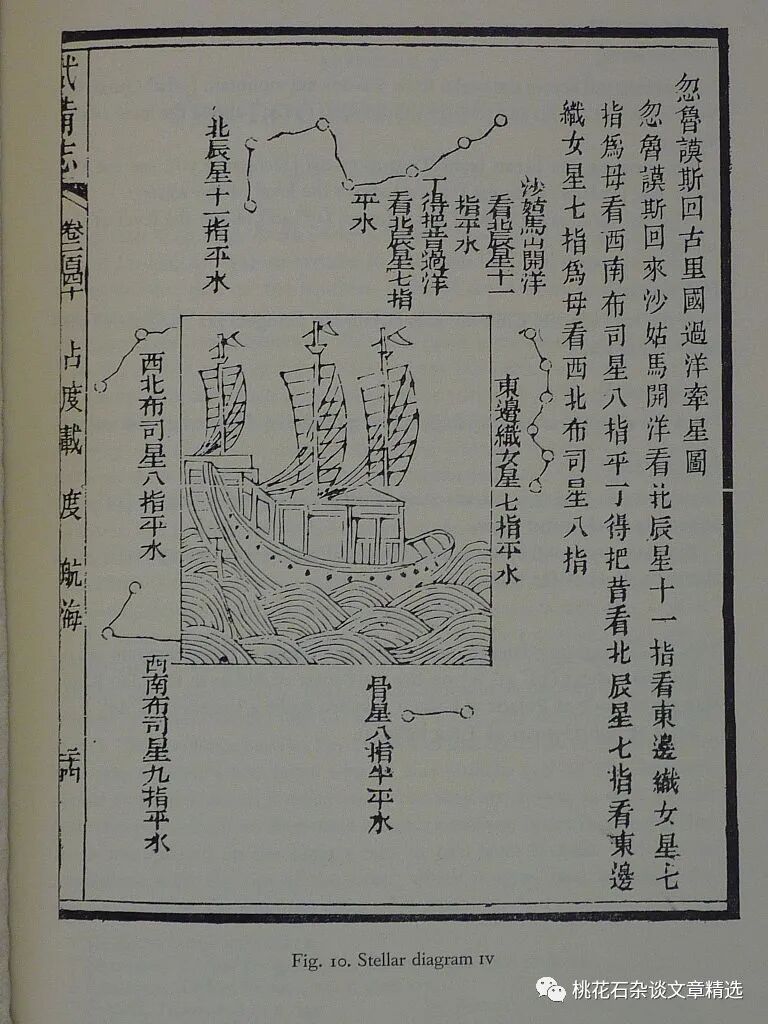 忽魯謨斯回古里國過洋牽星圖
忽魯謨斯回來沙姑馬開洋看北辰星十一指看東邊織女星七
指爲母看西南布司星八指平丁得把昔看北辰星七指看東邊
織女星七指爲母看西北布司星八指
沙姑馬山開洋
看北辰星十一
指平水
丁得把昔過洋
看北辰星七指
平水
北辰星十一指平水
東邊織女星七指平水
西北布司星八指平水
骨星八指半平水
西南布司星九指平水
武備志
卷二百四十
占度載 度 航海
Fig. 10. Stellar diagram IV
桃花石杂谈文章精选